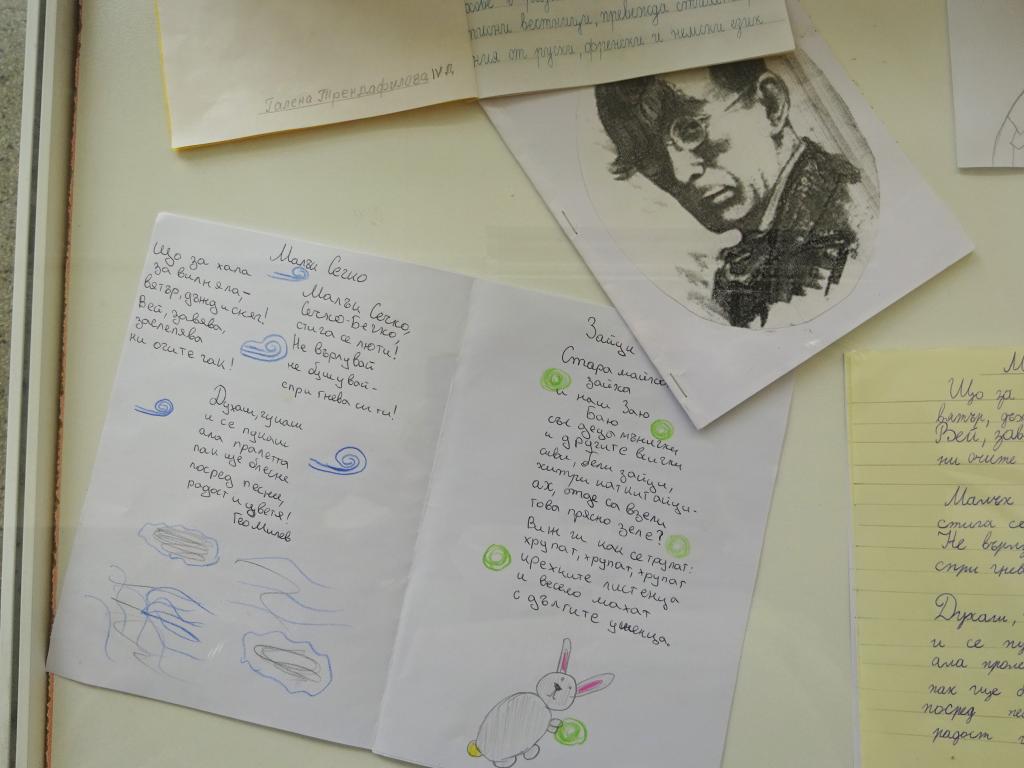 пионни вестници, превежда
ния от руски, френски и немски език
Галена Трендафилова IV Д
Малъи Сечко
Що за хала
завилняла,-
вятър, дъжд и сняг!
Вей, завява,
заслепява
ни очите чак!
Малъи Сечко,
Сечко-Бечко,
стига се люти!
Не върлувай
не бушувай-
спри гнева си ти!
Духаш, гушаш
и се пукаш
ала пролетта
пак ще блесне
посред песни,
радост и цветя!
Гео Милев
Зайци
Стара майка
зайка
и наш Заю
Баю
със деца мънички
и другите всички
сиви, бели зайци,
хитри кат китайци-
ах, отде са взели
това прясно зеле?
Виж ги как се трупат:
хрупат, хрупат, хрупат
крехките листенца
и весело махат
с дългите ушенца.
М
Що за
вятър, дъж
Вей, зав
ни очите
Малък
стига се
Не върл
спри гнев
Духали,
и се пу
ала проле
пак ще б
посред пе
радост